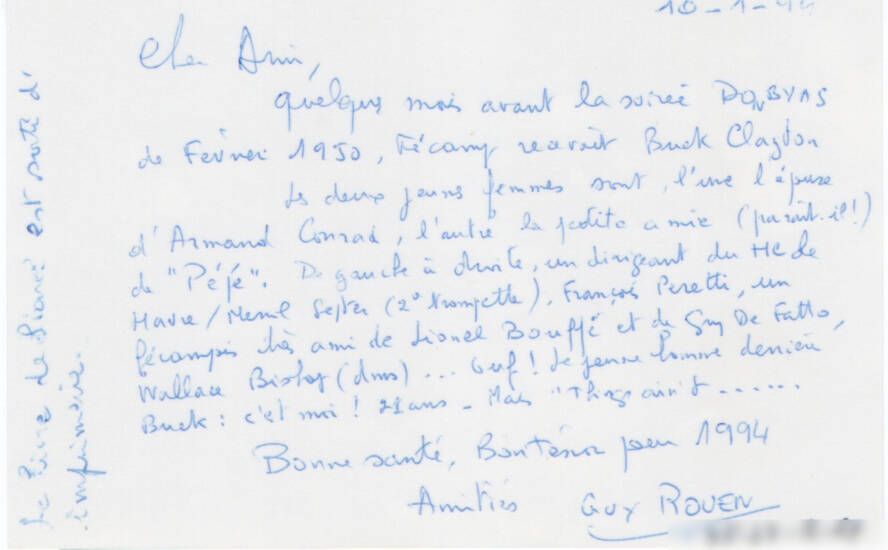 10-1-94
Cher Ami,
quelques mois avant la soirée DON BYAS
de Février 1950, Fécamp recevait Buck Clayton
Les deux jeunes femmes sont, l'une l'épouse
d'Armand Conrad, l'autre la petite amie (paraît-il!)
de "Péfé". De gauche à droite, un dirigeant du HC de
Havre / Merril Stepter (2° trompette), François Peretti, un
fécampois très ami de Lionel Bouffé et de Guy De Fatto,
Wallace Bishop (dms) ... Ouf! Le jeune homme derrière
Buck : c'est moi ! 21 ans - Mais "Things ain't ......
Bonne santé, pour 1994
Amitiés GUY ROUEN
Le livre de est sorti d'
imprimerie.